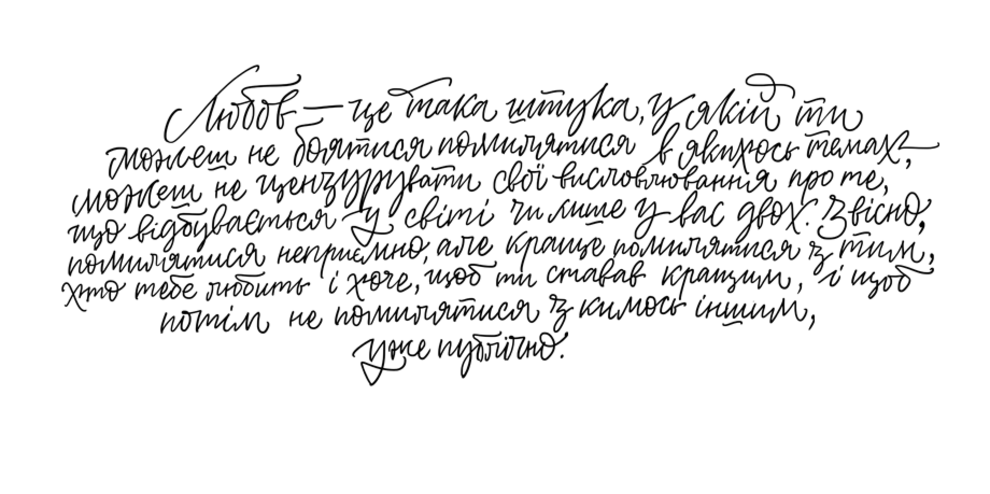 Любов — це така штука, у якій ти
можеш не боятися помилятися в якихось темах,
можеш не цензурувати свої висловлювання про те,
що відбувається у світі чи лише у вас двох. Звісно,
помилятися неприємно, але краще помилятися з тим,
хто тебе любить і хоче, щоб ти ставав кращим, і щоб
потім не помилятися з кимось іншим,
уже публічно.